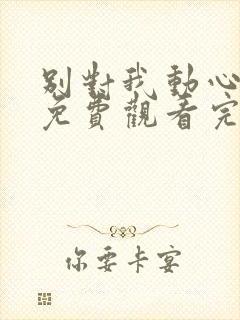 別對我動心
免費觀看完
你要卡宴